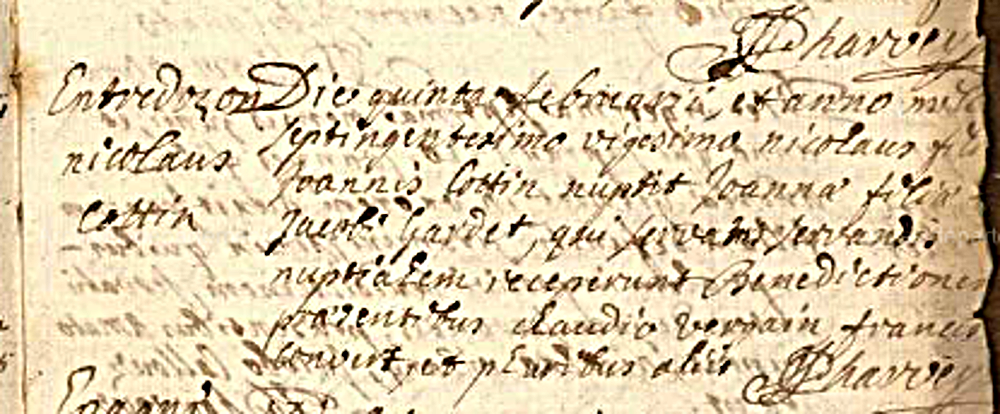 Dharvey
Entredozon Die quinta februarii, et anno mill
septingentesimo vigesimo nicolaus fil
nicolaus
Joannis Cottin nupsit Joanna filia
Cottin
Jacobi Gardet, qui servatis servandis
nuptialem receperunt Benedictionem
praesentibus claudio vergain francis
bonvert, et pluribus aliis Dharvey